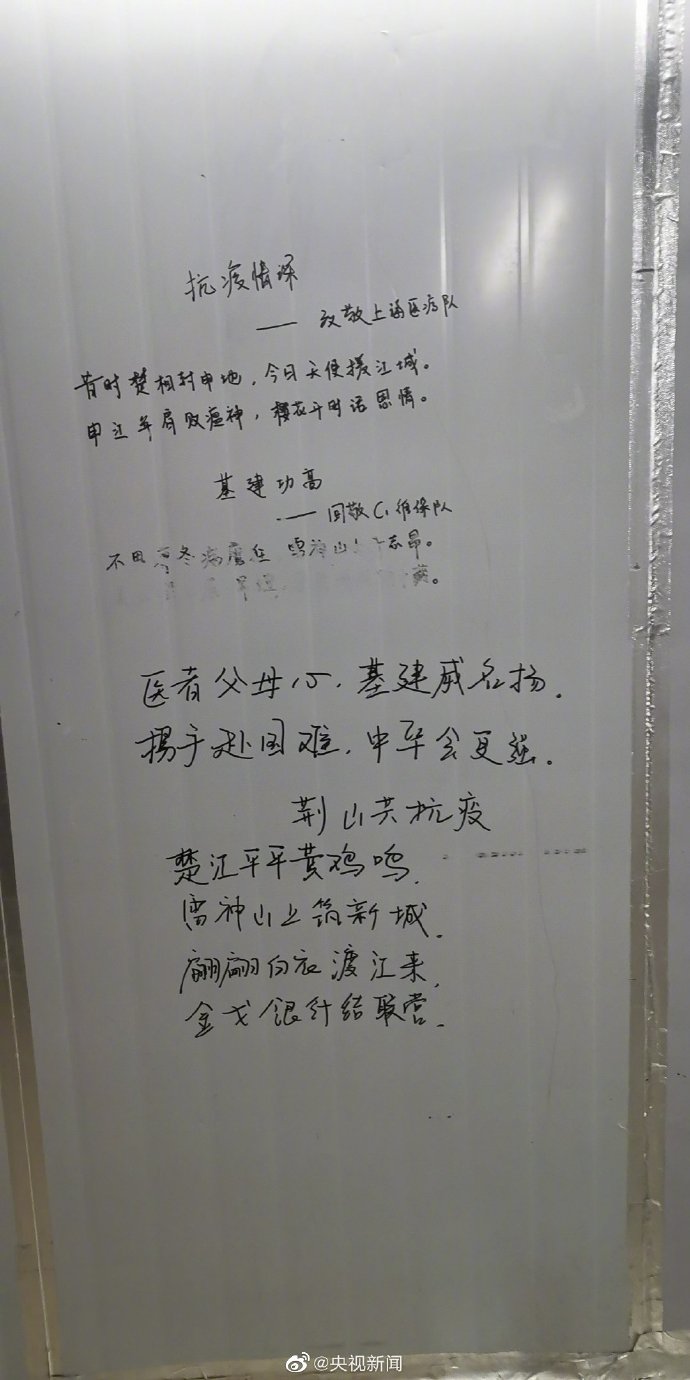 抗疫情深
—— 致敬上海医疗队
昔时楚相封申地，今日天使援江城。
申江并肩败瘟神，樱花开时话恩情。
基建功高
—— 回敬C1维保队
不思 冬病 雷神山上 志昂。
医者父母心，基建威名扬．
携手赴国难，中华会更强．
荆山共抗疫
楚江平平黄鸡鸣，
雷神山上筑新城．
翩翩白衣渡江来，
金戈银针结联营．
@央视新闻